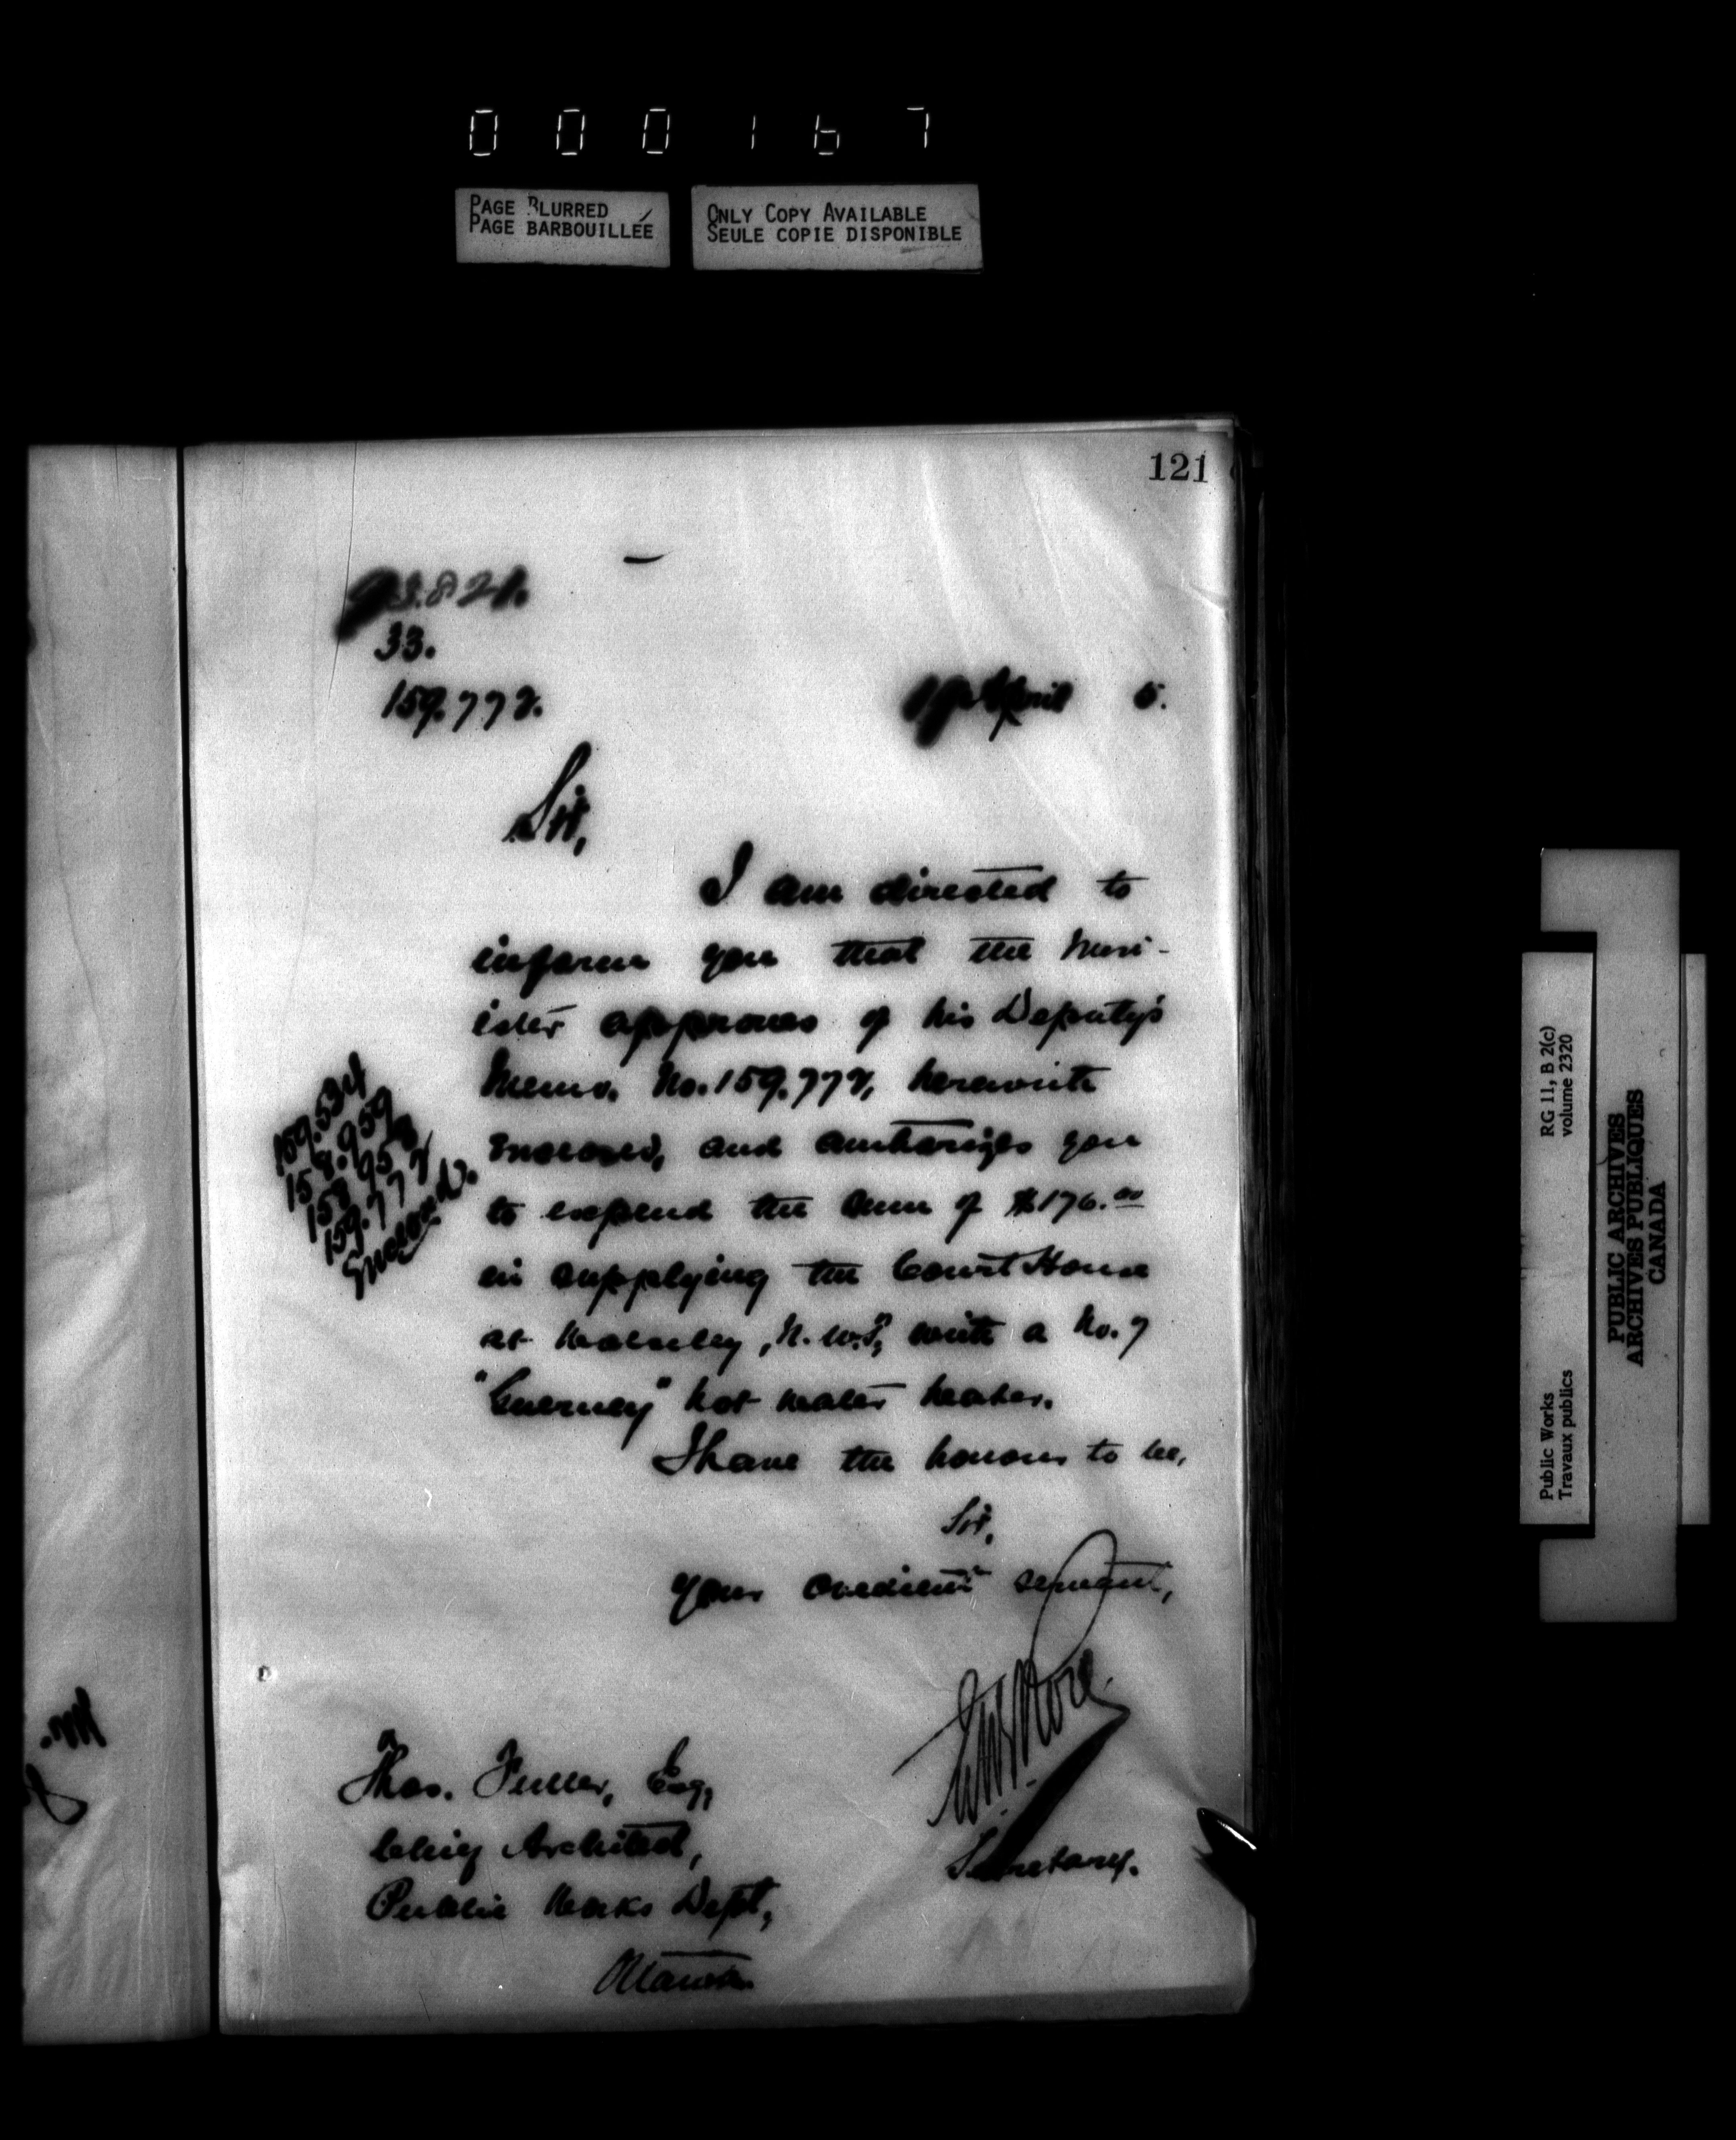 000167
PAGE BLURRED
PAGE BARBOUILLÉE
ONLY COPY AVAILABLE
SEULE COPIE DISPONIBLE
121
33.
159.772.
April 5.
Sir,
I am directed to
inform you that the Min-
ister approves of his Deputy's
Memo. No. 159.772, herewith
enclosed, and authorizes you
to expend the sum of $176.00
in supplying the Court House
at Wolseley, N.W.T, with a No. 7
"Guerney" hot water heater.
159.534
158.959
158.958
159.772
Enclosed.
I have the honour to be,
Sir,
Your obedient servant,
Secretary.
Thos. Fuller, Esq,
Chief Architect,
Public Works Dept,
Ottawa.
Mr.
RG 11, B 2(c)
volume 2320
Public Works
Travaux publics
PUBLIC ARCHIVES
ARCHIVES PUBLIQUES
CANADA